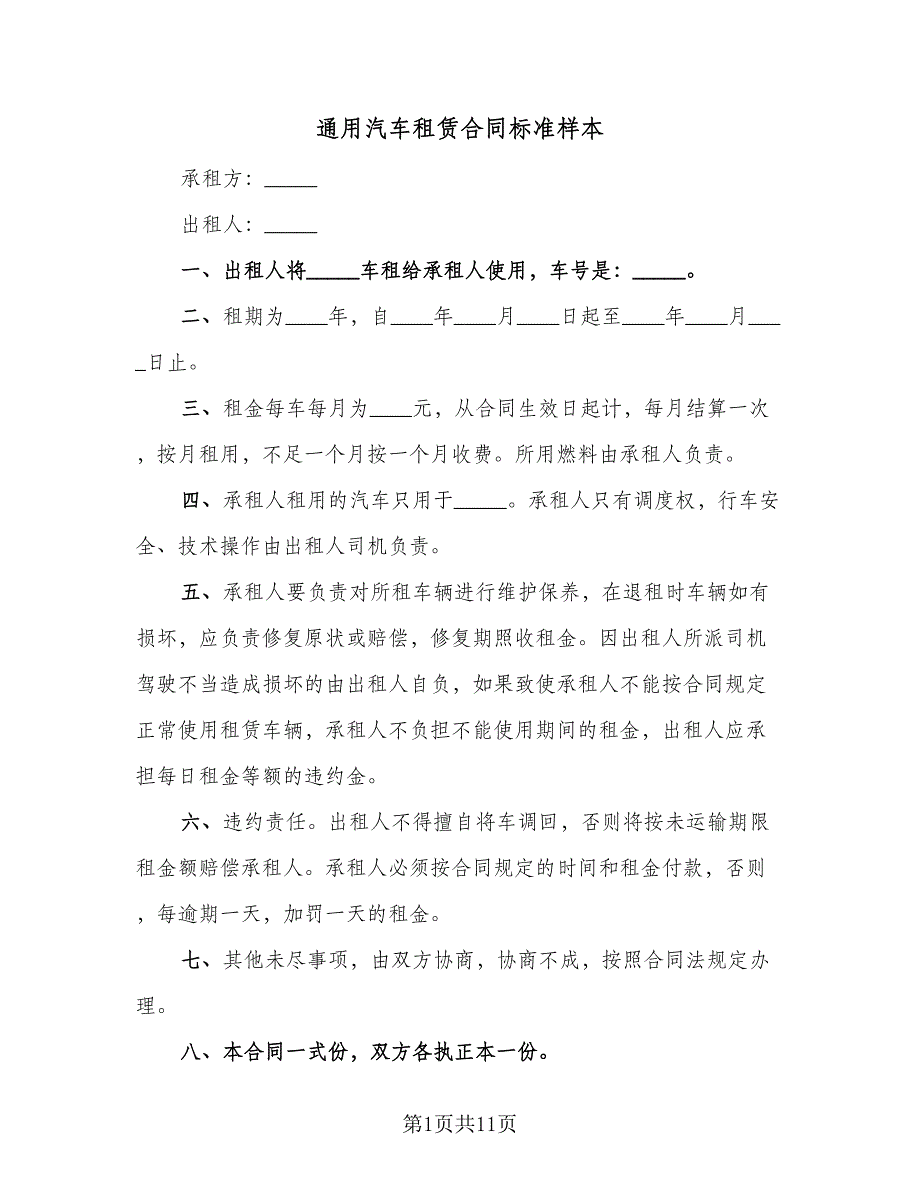 通用汽车租赁合同标准样本
承租方：_____
出租人：_____
一、出租人将_____车租给承租人使用，车号是：_____。
二、租期为____年，自____年____月____日起至____年____月___
_日止。
三、租金每车每月为____元，从合同生效日起计，每月结算一次
，按月租用，不足一个月按一个月收费。所用燃料由承租人负责。
四、承租人租用的汽车只用于_____。承租人只有调度权，行车安
全、技术操作由出租人司机负责。
五、承租人要负责对所租车辆进行维护保养，在退租时车辆如有
损坏，应负责修复原状或赔偿，修复期照收租金。因出租人所派司机
驾驶不当造成损坏的由出租人自负，如果致使承租人不能按合同规定
正常使用租赁车辆，承租人不负担不能使用期间的租金，出租人应承
担每日租金等额的违约金。
六、违约责任。出租人不得擅自将车调回，否则将按未运输期限
租金额赔偿承租人。承租人必须按合同规定的时间和租金付款，否则
，每逾期一天，加罚一天的租金。
七、其他未尽事项，由双方协商，协商不成，按照合同法规定办
理。
八、本合同一式份，双方各执正本一份。
第1页共11页